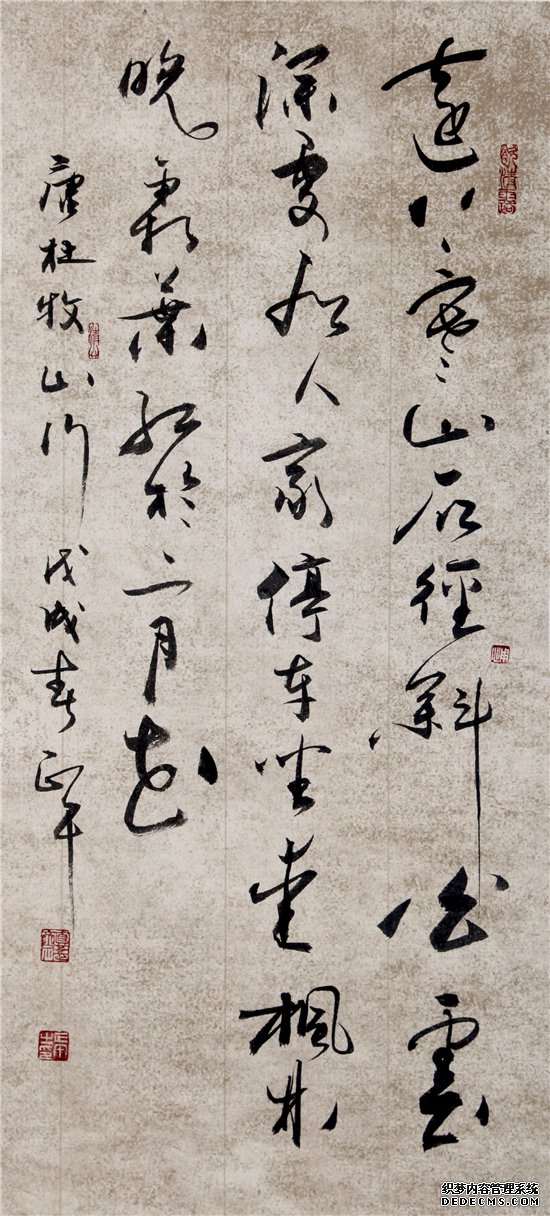 遠上寒山石徑斜白雲
深處有人家停車坐愛楓林
晚霜葉紅於二月花
唐杜牧山行 戊戌春
织梦内容管理系统
DEDECMS.COM